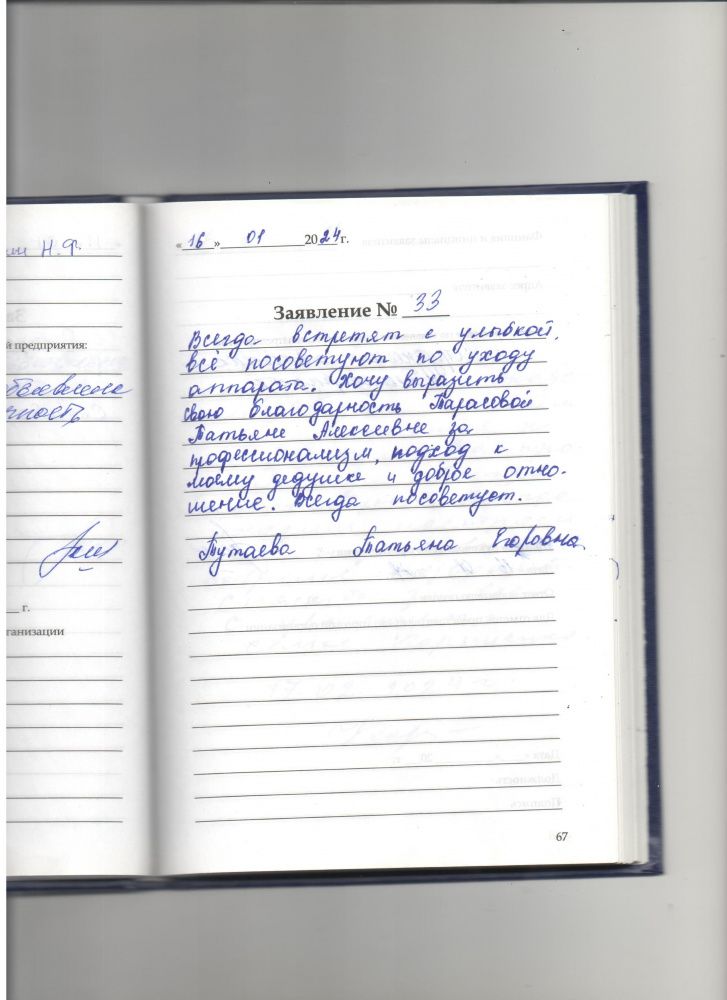 Н. Ф.
й предприятия:
г.
ганизации
«16» 01 2024 г.
Заявление № 33
Всегда встретят с улыбкой,
всё посоветуют по уходу
аппарата. Хочу выразить
свою благодарность Тарасовой
Татьяне Алексеевне за
профессионализм, подход к
моему дедушке и доброе отно-
шение. Всегда посоветует.
Путаева Татьяна Егоровна
67